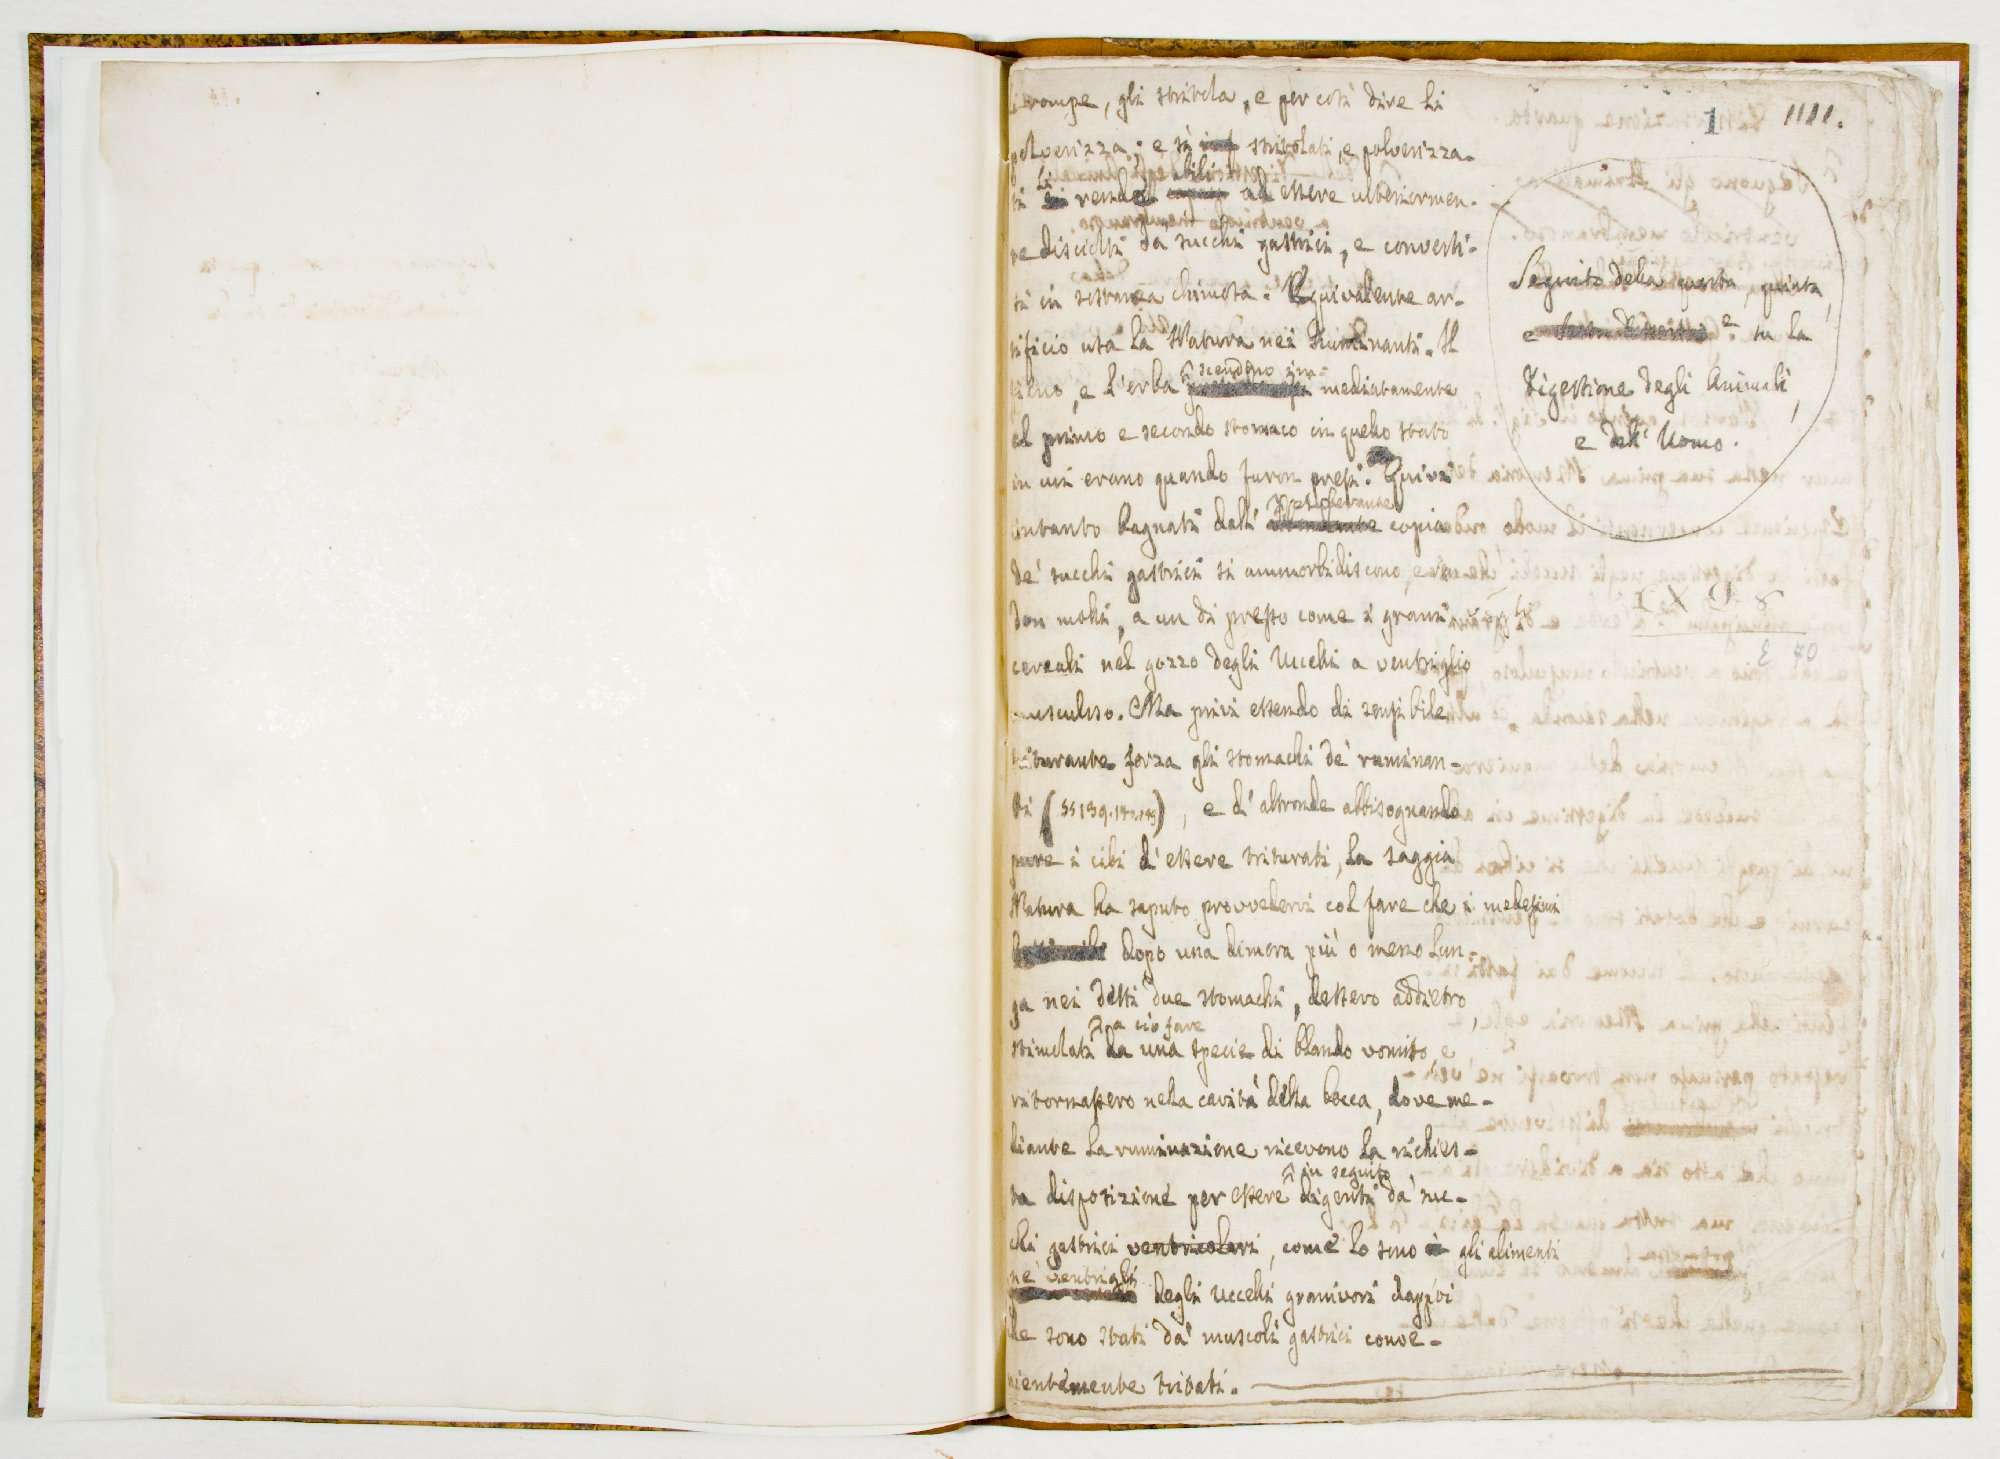 1
1111.
rompe, gli stritola, e per così dire li
polverizza; e sì stritolati, e polverizza-
ti li rende abili ad essere ulteriormen-
te disciolti da succhi gastrici, e converti-
ti in sostanza chimosa. Equivalente ar-
tificio usa la Natura nei Ruminanti. Il
fieno, e l'erba scendono im-mediatamente
al primo e secondo stomaco in quello stato
in cui erano quando furon presi. Quivi
intanto bagnati dall' copia
de' succhi gastrici si ammorbidiscono, e
don molli, a un di presso come i grani
cereali nel gozzo degli Uccelli a ventriglio
musculoso. Ma privi essendo di sensibile
triturante forza gli stomachi de' ruminan-
ti (§§ 139. ), e d' altronde abbisognando
pure i cibi d' essere triturati, la saggia
Natura ha saputo provvedervi col fare che i medesimi
dopo una dimora più o meno lun-
ga nei detti due stomachi, dessero addietro,
stimolati a ciò fare da una specie di blando vomito, e
ritornassero nella cavità della bocca, dove me-
diante la ruminazione ricevono la richies-
ta disposizione per essere in seguito digeriti da' suc-
chi gastrici ventricolari, come lo sono gli alimenti
ne' ventrigli degli uccelli granivori dappoi
che sono stati da' muscoli gastrici conve-
nientemente tritati.
Seguito della quarta, quinta,
e su la
Digestione degli Animali,
e dell' Uomo.